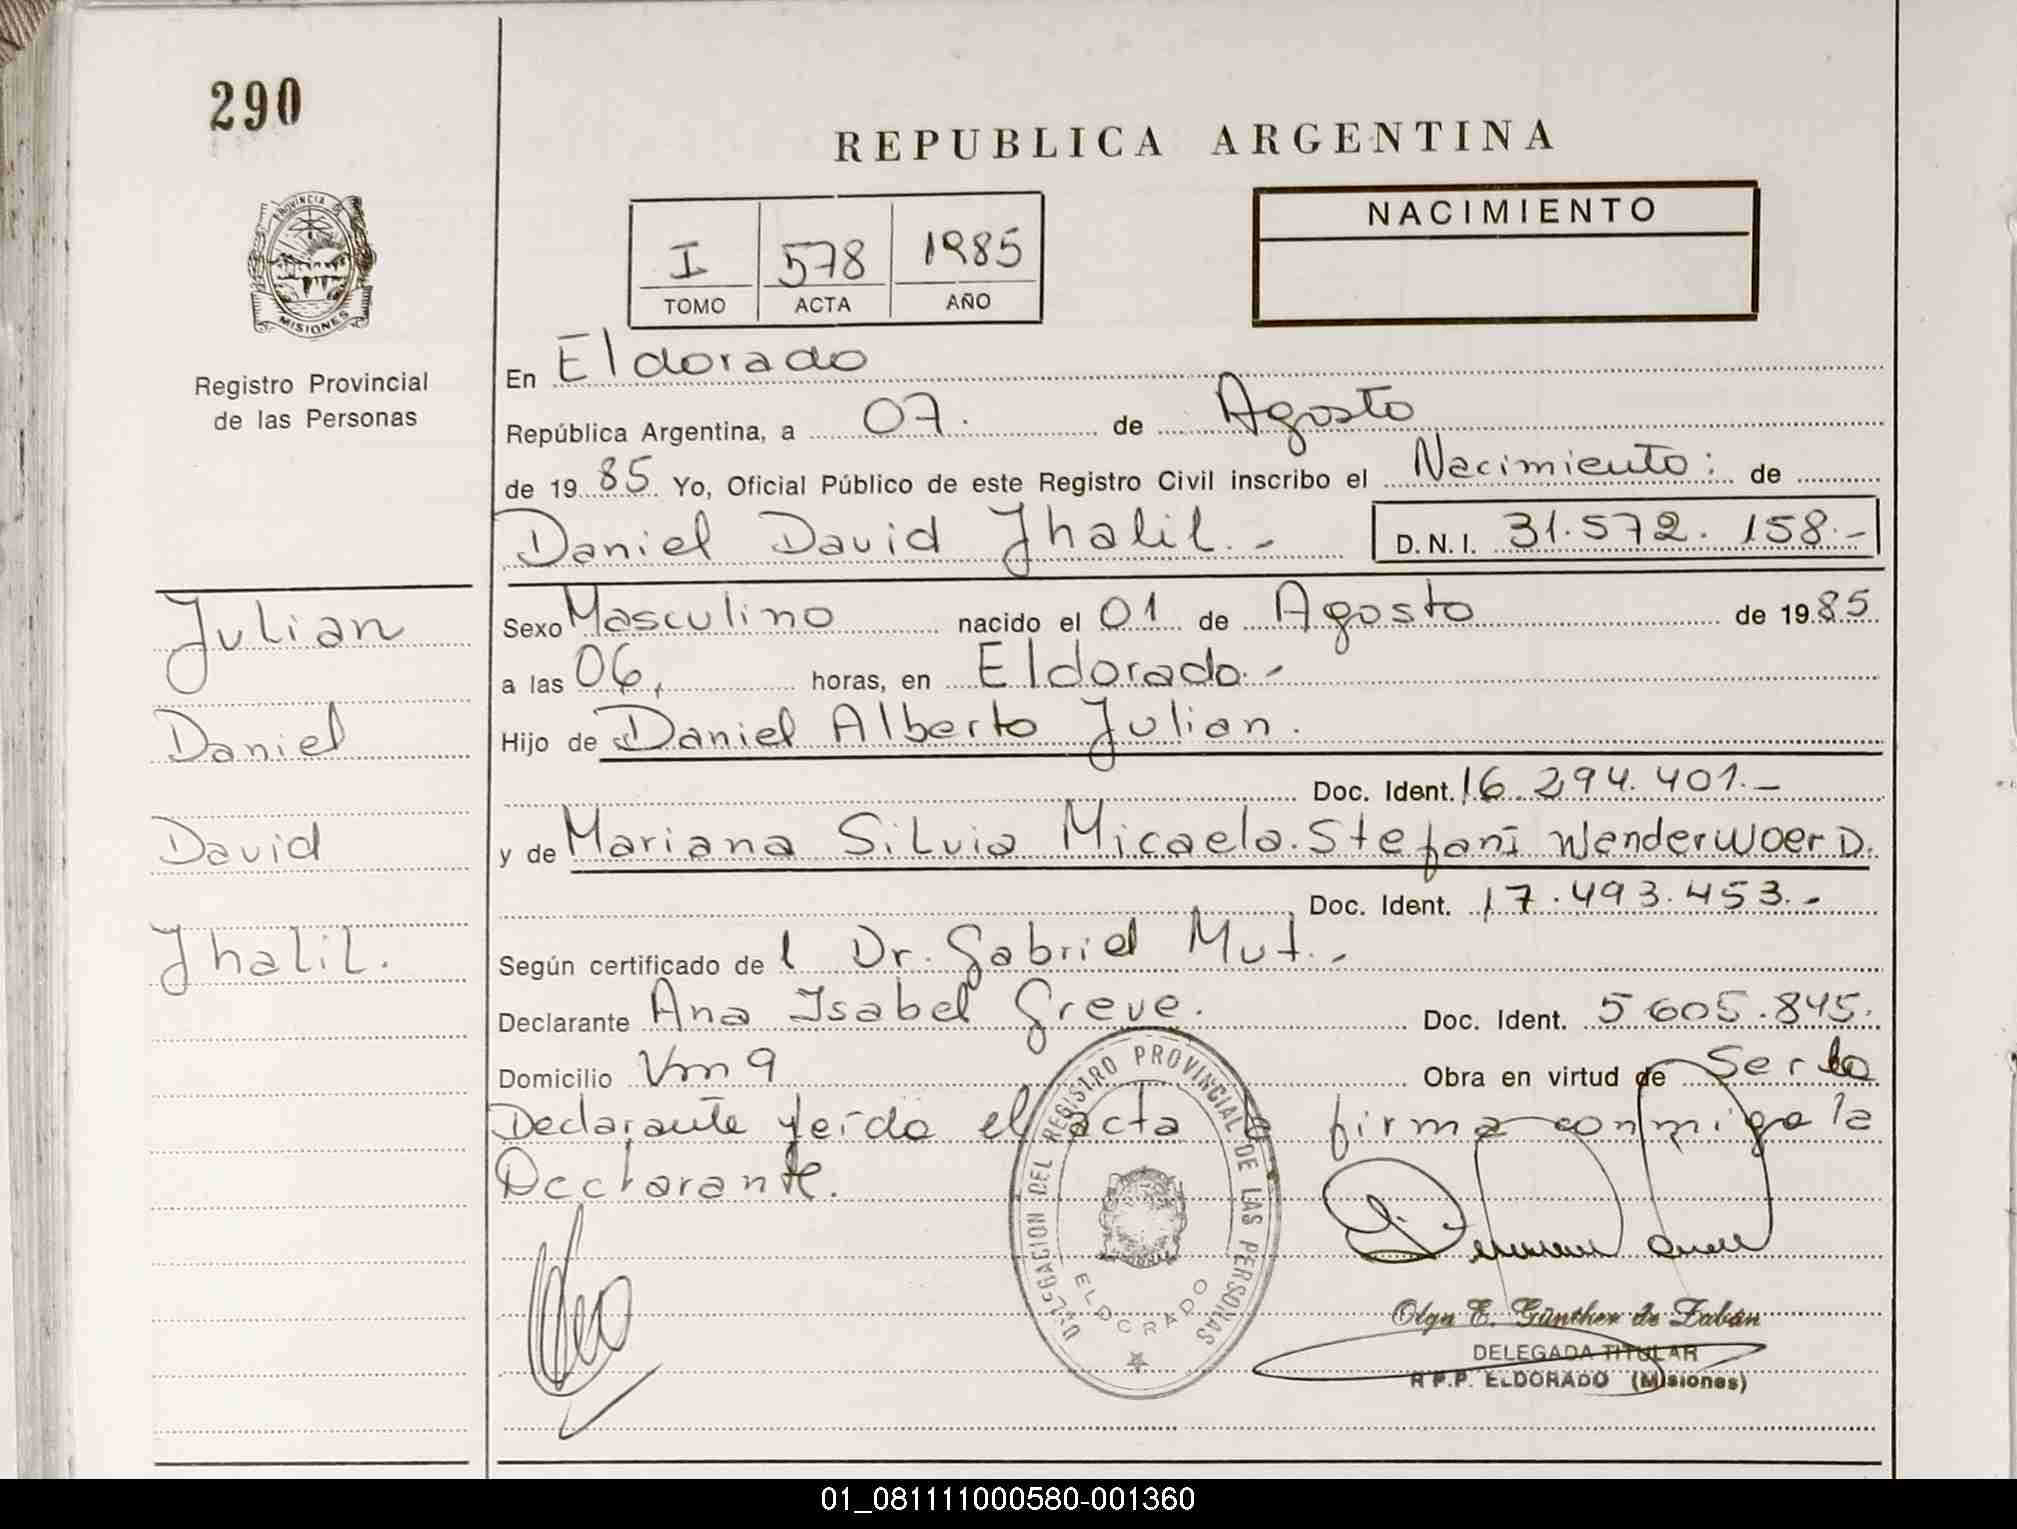 290
REPUBLICA ARGENTINA
PROVINCIA DE
MISIONES
Registro Provincial
de las Personas
I 578 1985
TOMO ACTA AÑO
NACIMIENTO
En Eldorado
República Argentina, a 07. de Agosto
de 1985 Yo, Oficial Público de este Registro Civil inscribo el Nacimiento: de
Daniel David Jhalil.- D.N.I. 31.572.158.-
Julian
Daniel
David
Jhalil.
Sexo Masculino nacido el 01 de Agosto de 1985
a las 06, horas, en Eldorado.-
Hijo de Daniel Alberto Julian.
Doc. Ident. 16.294.401.-
y de Mariana Silvia Micaela. Stefani Wenderwoer D.
Doc. Ident. 17.493.453.-
Según certificado de l Dr. Gabriel Mut.-
Declarante Ana Isabel Greve. Doc. Ident. 5605.845.
Domicilio Km 9 Obra en virtud de Ser la
Declarante leída el acta la firma conmigo la
Declarante.
DELEGACION DEL REGISTRO PROVINCIAL DE LAS PERSONAS
ELDORADO
Olga E. Günther de Zabán
DELEGADA TITULAR
R.P.P. ELDORADO (Misiones)
01_081111000580-001360